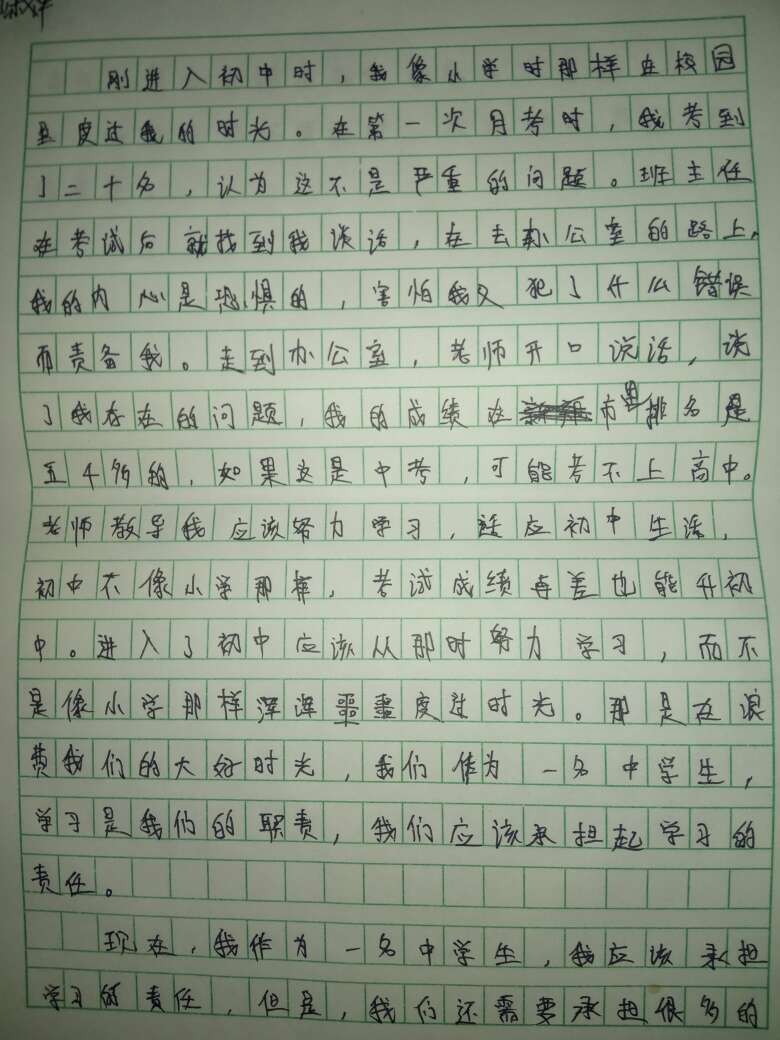 刚进入初中时，我像小学时那样在校园
里度过我的时光。在第一次月考时，我考到
了二十名，认为这不是严重的问题。班主任
在考试后就找到我谈话，在去办公室的路上，
我的内心是恐惧的，害怕我又犯了什么错误
而责备我。走到办公室，老师开口说话，说
了我存在的问题，我的成绩在市里排名是
五千多的，如果这是中考，可能考不上高中。
老师教导我应该努力学习，适应初中生活，
初中不像小学那样，考试成绩再差也能升初
中。进入了初中应该从那时努力学习，而不
是像小学那样浑浑噩噩度过时光。那是在浪
费我们的大好时光，我们作为一名中学生，
学习是我们的职责，我们应该承担起学习的
责任。
现在，我作为一名中学生，我应该承担
学习的责任，但是，我们还需要承担很多的